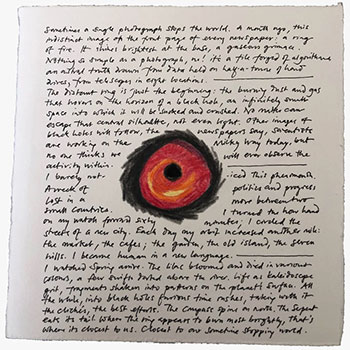 Sometimes a single photograph stops the world. A month ago, this
indistinct image of the front page of every newspaper: a ring
of fire. It shines brightest at the base, a gaseous grimace.
Nothing so simple as a photograph, no! it's a file forged of algorithms
an astral truth drawn from data held on half-a-tonne of hard
drives, from telescopes in eight locations.
The distant ring is just the beginning: the burning dust and gas
that hovers on the horizon of a black hole, an infinitely small
space into which it will be sucked and crushed. No matter can
escape that central silhouette, not even light. Other images of
black holes will follow, the newspapers say, scientists
are working on the Milky Way today, but
no one thinks we will ever observe the
activity within.
I barely noticed this phenomenon
A week of politics and progress
lost in a move between two
small countries. I turned the hour hand
on my watch forward sixty minutes, I circled the
streets of a new city. Each day my orbit increased another mile:
the market, the cafes, the garden, the old island, the seven
hills. I became human in a new language.
I watched Spring arrive. The lilac bloomed and died in various
colours, a few drifts dashed above the river. Life as kaleidoscope
grit, fragments shaken into patterns on the planet's surface. All
the while, into black holes furious time rushes, taking with it
the clichés, the best efforts. The compass spins on north. The serpent
eats its tail. Where the ring appears to burn most brightly, that's
where it's closest to us. Closest to our sometime stopping world.